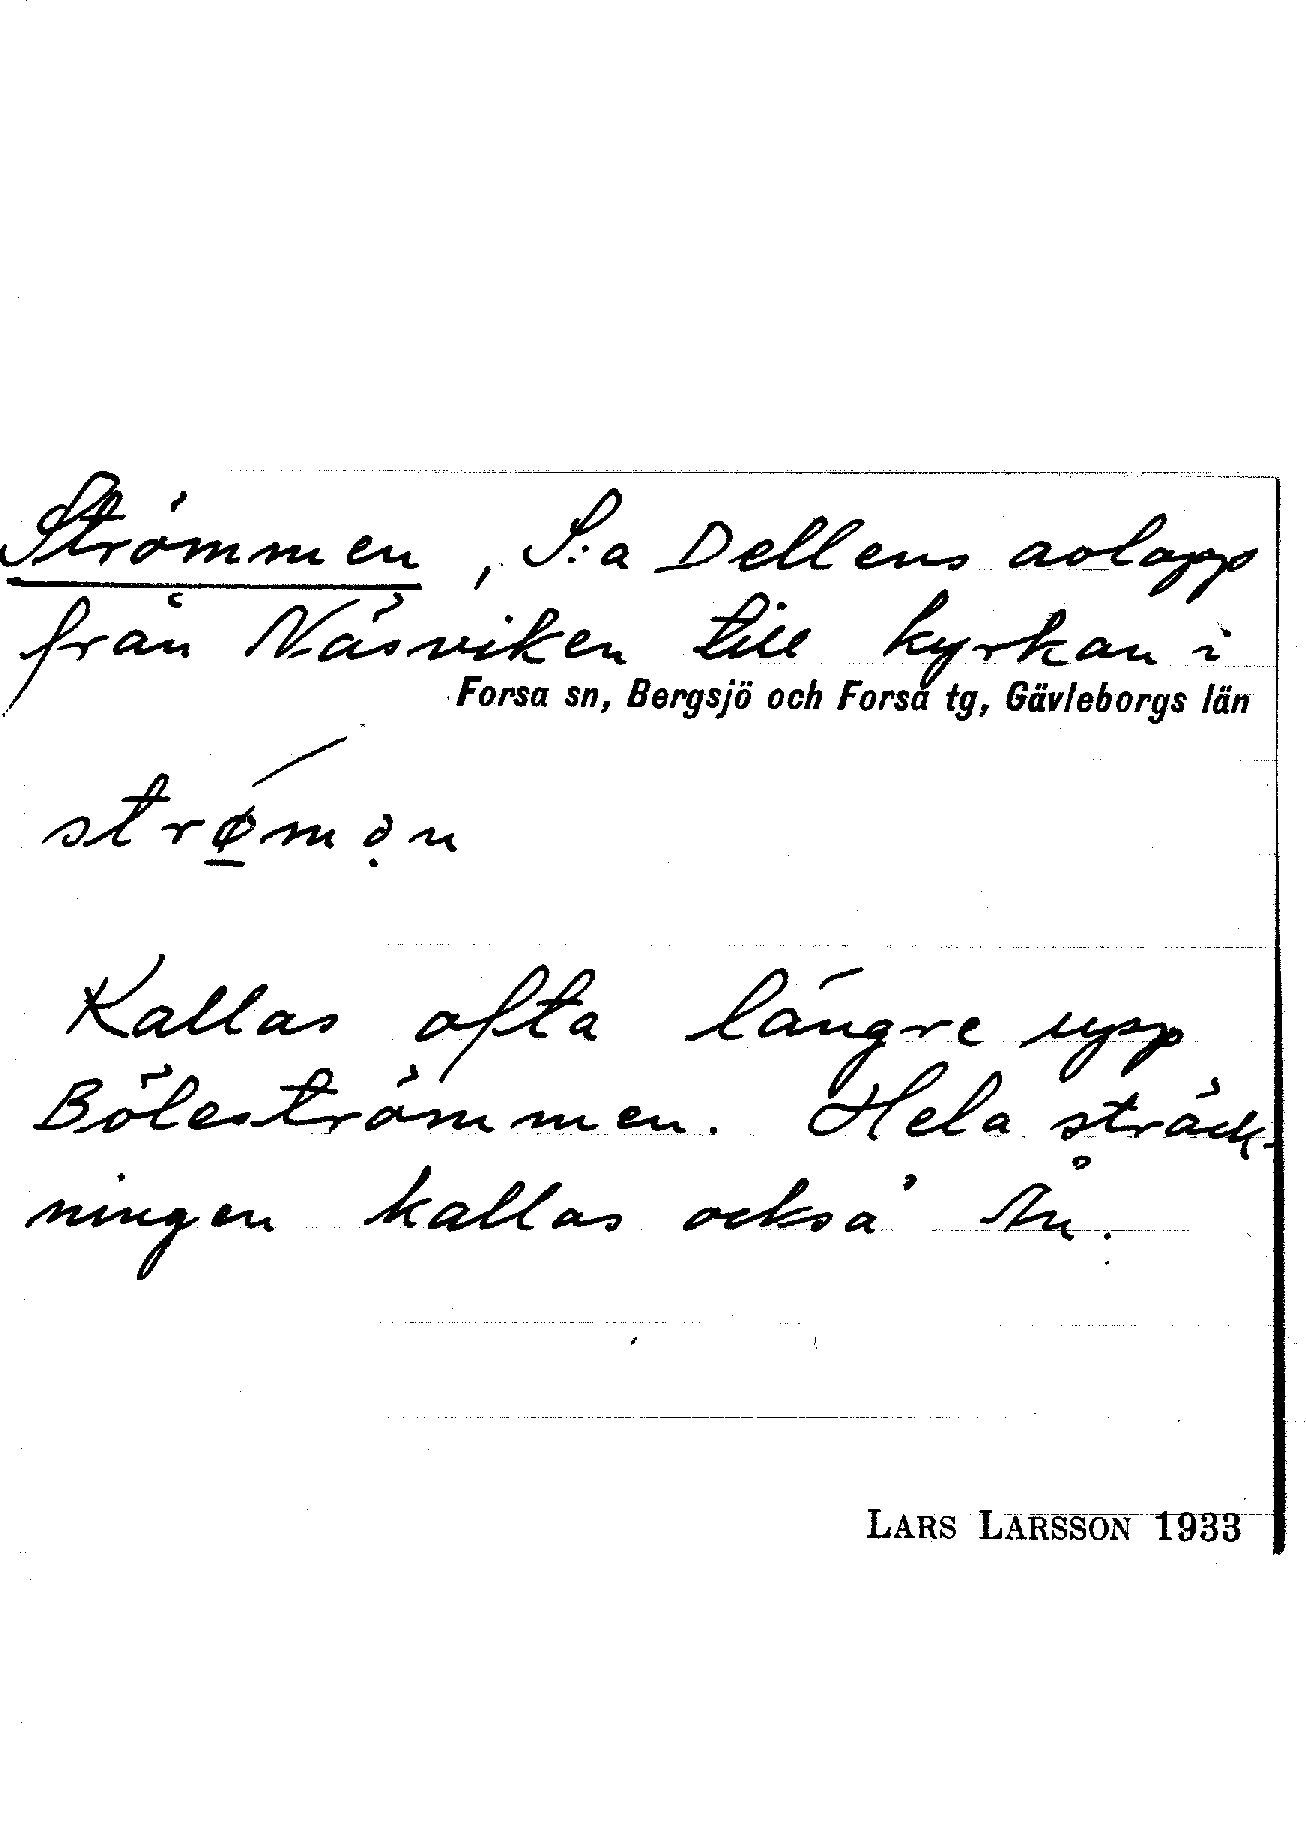 Strömmen, S:a Dellens avlopp
från Näsviken till kyrkan i
Forsa sn, Bergsjö och Forsa tg, Gävleborgs län
Kallas ofta längre upp
Böleströmmen. Hela sträck-
ningen kallas också Ån.
LARS LARSSON 1933